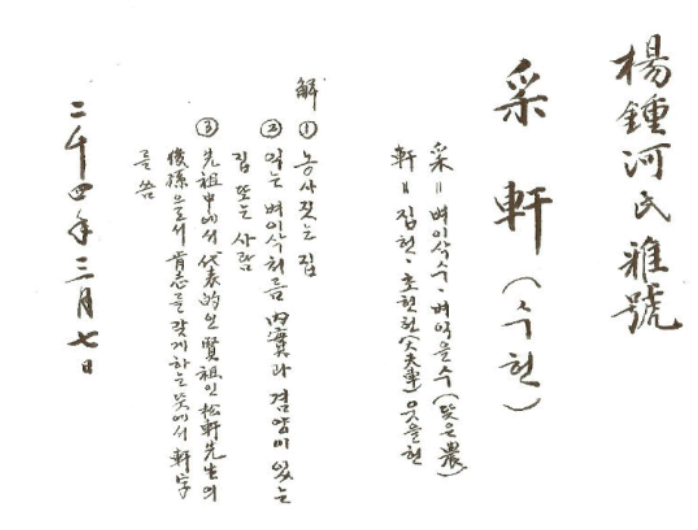 楊鍾河氏雅號
采軒(수헌)
采 = 벼이삭수·벼익을수(뜻은農)
軒 = 집헌·초헌헌(大夫車) 웃을헌
解 ① 농사짓는 집
② 익는 벼이삭처름 內實과 겸양이 있는
집 또는 사람
③ 先祖中에서 代表的인 賢祖인 松軒先生의
後孫으로서 肯志를 갖게하는 뜻에서 軒字
를 씀
二千四年三月七日